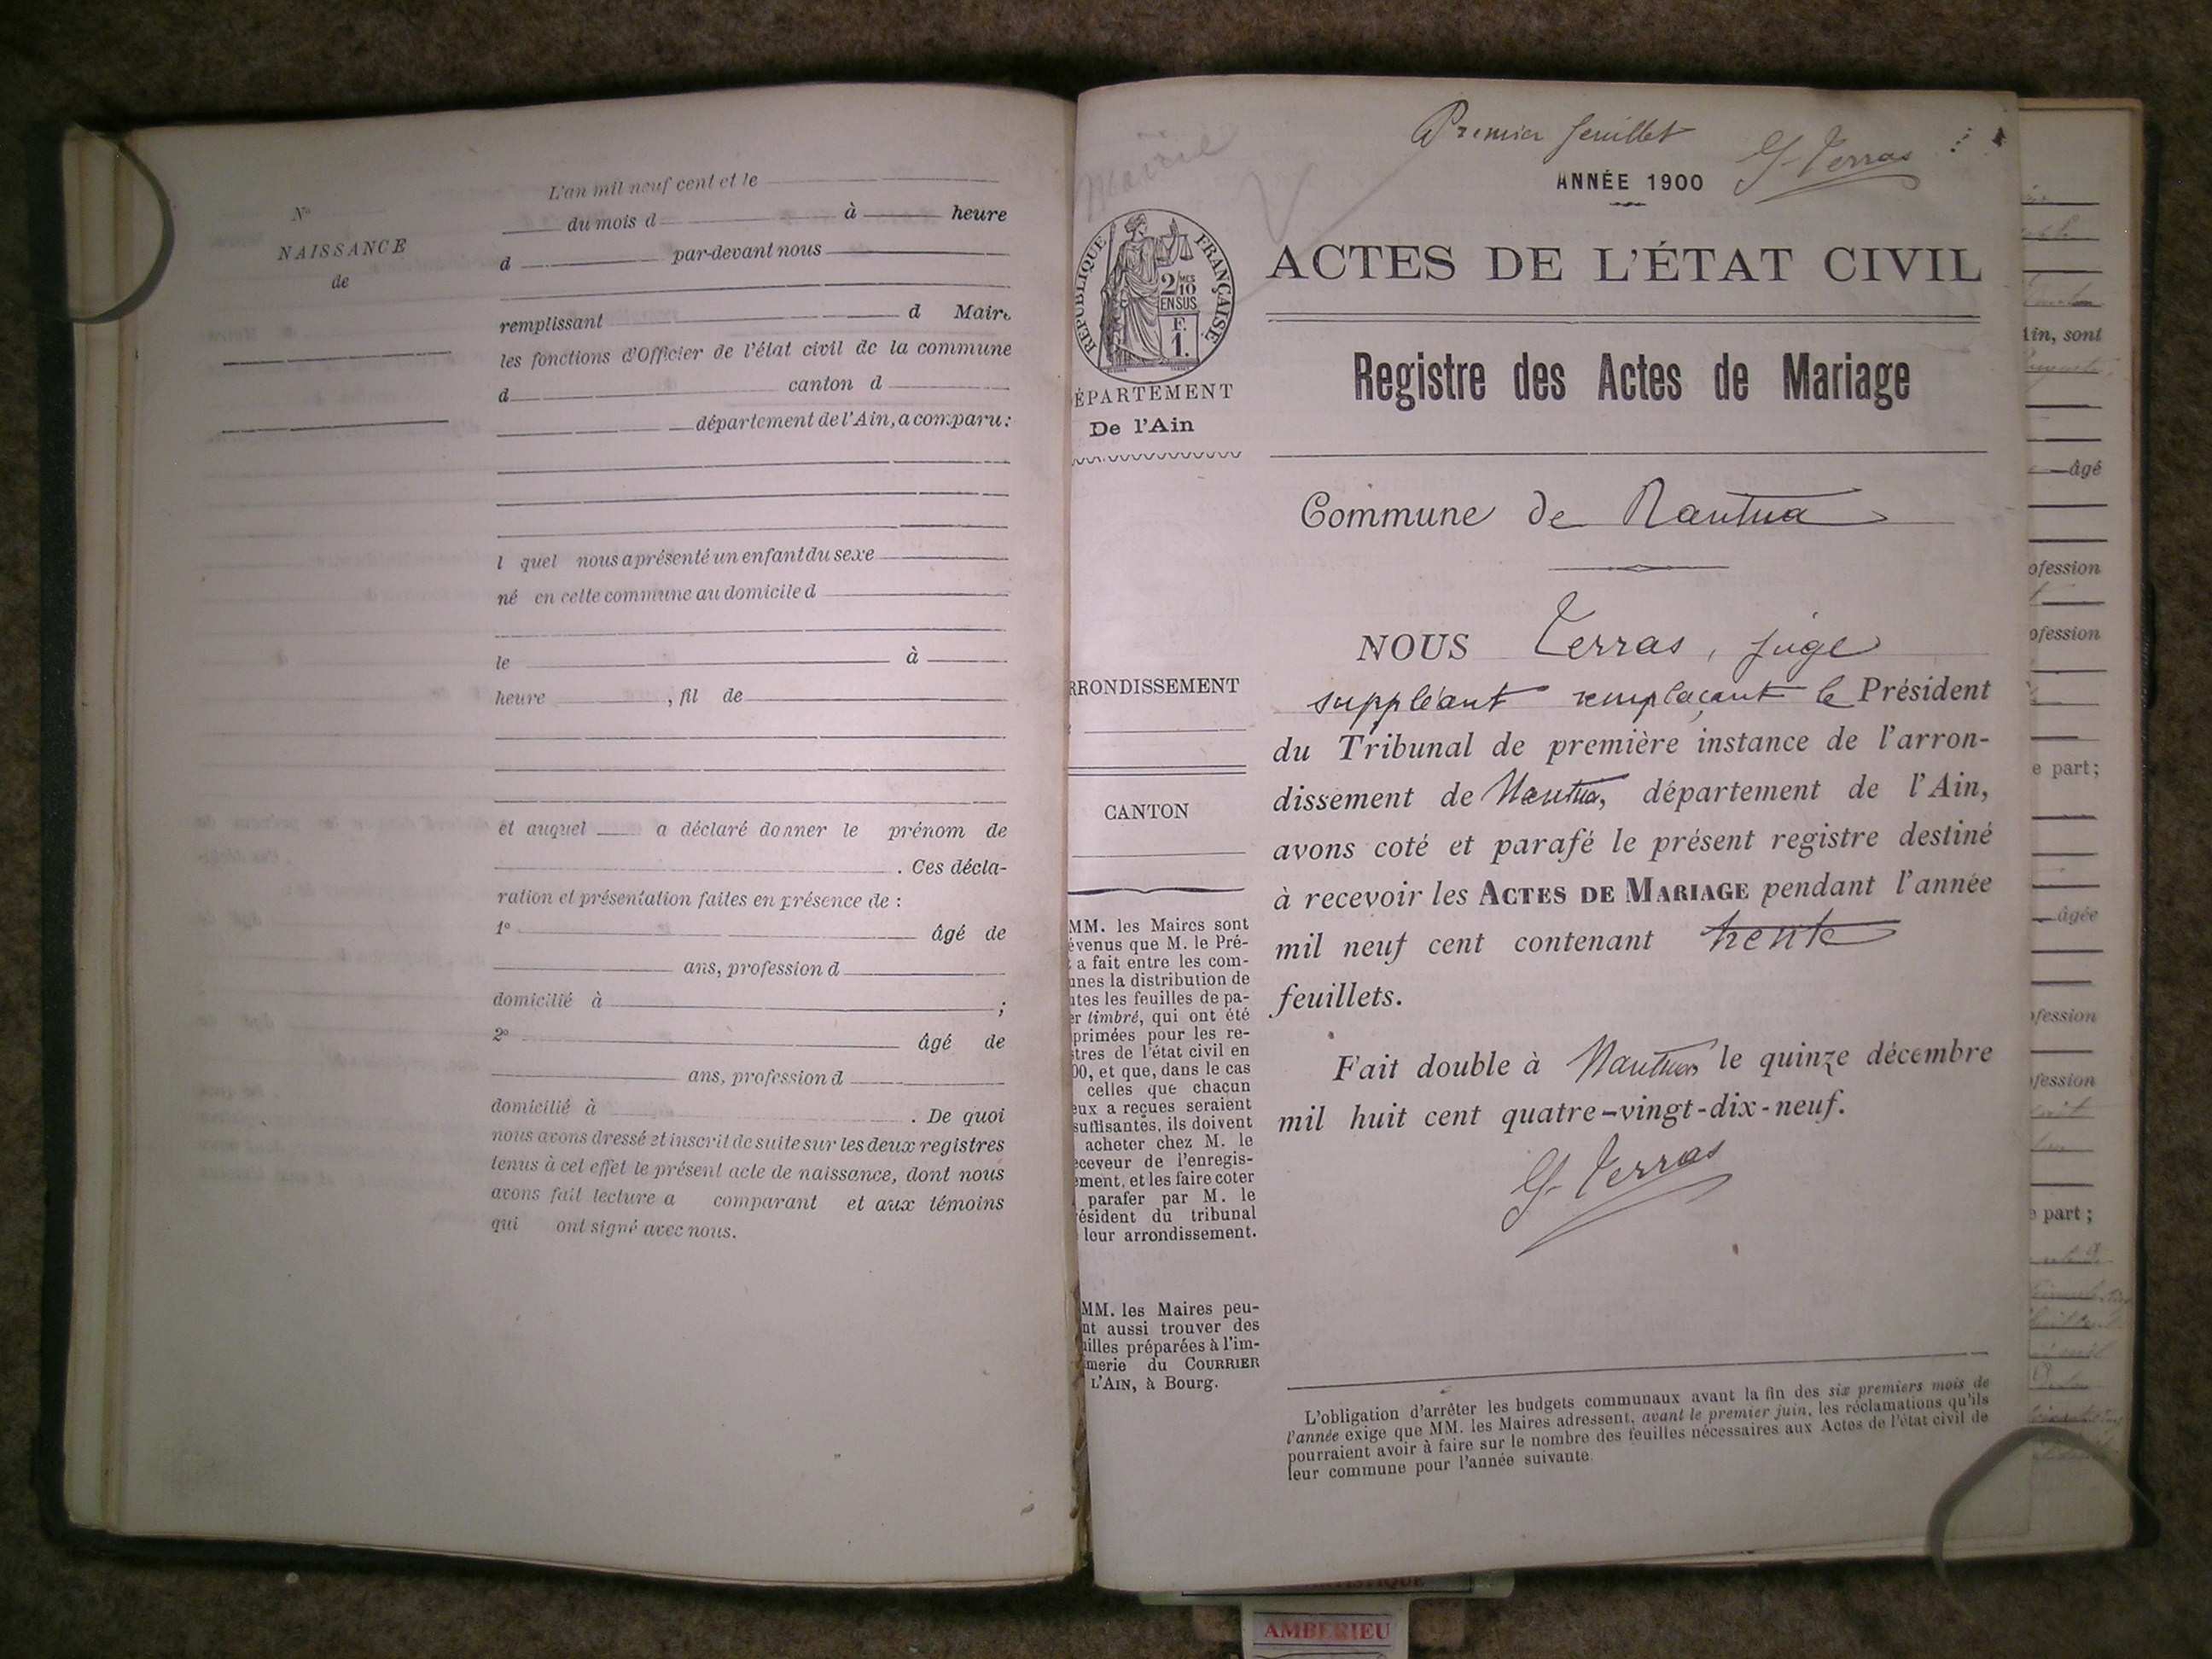 N°
NAISSANCE
de
L'an mil neuf cent et le
du mois d à heure
d par-devant nous
remplissant d Maire
les fonctions d'Officier de l'état civil de la commune
d canton d
département de l'Ain, a comparu :
l quel nous a présenté un enfant du sexe
né en cette commune au domicile d
le à
heure , fil de
et auquel a déclaré donner le prénom de
. Ces décla-
ration et présentation faites en présence de :
1° âgé de
ans, profession d
domicilié à ;
2° âgé de
ans, profession d
domicilié à . De quoi
nous avons dressé et inscrit de suite sur les deux registres
tenus à cet effet le présent acte de naissance, dont nous
avons fait lecture a comparant et aux témoins
qui ont signé avec nous.
Mairie
Premier feuillet
ANNÉE 1900
G. Terras
RÉPUBLIQUE FRANÇAISE
2/10 MES
EN SUS
F.
1.
ÉPARTEMENT
De l'Ain
RRONDISSEMENT
CANTON
MM. les Maires sont
évenus que M. le Pré-
t a fait entre les com-
unes la distribution de
utes les feuilles de pa-
er timbré, qui ont été
primées pour les re-
stres de l'état civil en
00, et que, dans le cas
celles que chacun
eux a reçues seraient
suffisantes, ils doivent
acheter chez M. le
eceveur de l'enregis-
ement, et les faire coter
parafer par M. le
résident du tribunal
leur arrondissement.
MM. les Maires peu-
nt aussi trouver des
uilles préparées à l'im-
merie du COURRIER
L'AIN, à Bourg.
ACTES DE L'ÉTAT CIVIL
Registre des Actes de Mariage
Commune de Nantua
NOUS Terras, juge
suppléant remplaçant le Président
du Tribunal de première instance de l'arron-
dissement de Nantua, département de l'Ain,
avons coté et parafé le présent registre destiné
à recevoir les ACTES DE MARIAGE pendant l'année
mil neuf cent contenant trente
feuillets.
Fait double à Nantua le quinze décembre
mil huit cent quatre-vingt-dix-neuf.
G. Terras
L'obligation d'arrêter les budgets communaux avant la fin des six premiers mois de
l'année exige que MM. les Maires adressent, avant le premier juin, les réclamations qu'ils
pourraient avoir à faire sur le nombre des feuilles nécessaires aux Actes de l'état civil de
leur commune pour l'année suivante.
Ain, sont
âgé
ofession
ofession
e part ;
âgée
ofession
ofession
e part ;
AMBERIEU